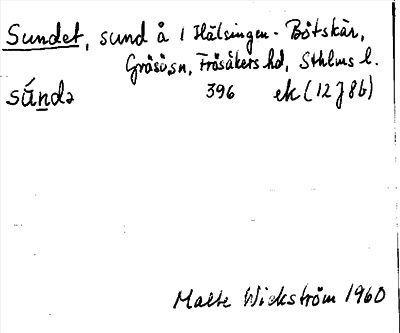 Sundet, sund å 1 Hälsingen - Båtskär,
Gräsö sn, Frösåkers hd, Sthlms l.
súndə 396 ek (12 J 8b)
Malte Wickström 1960